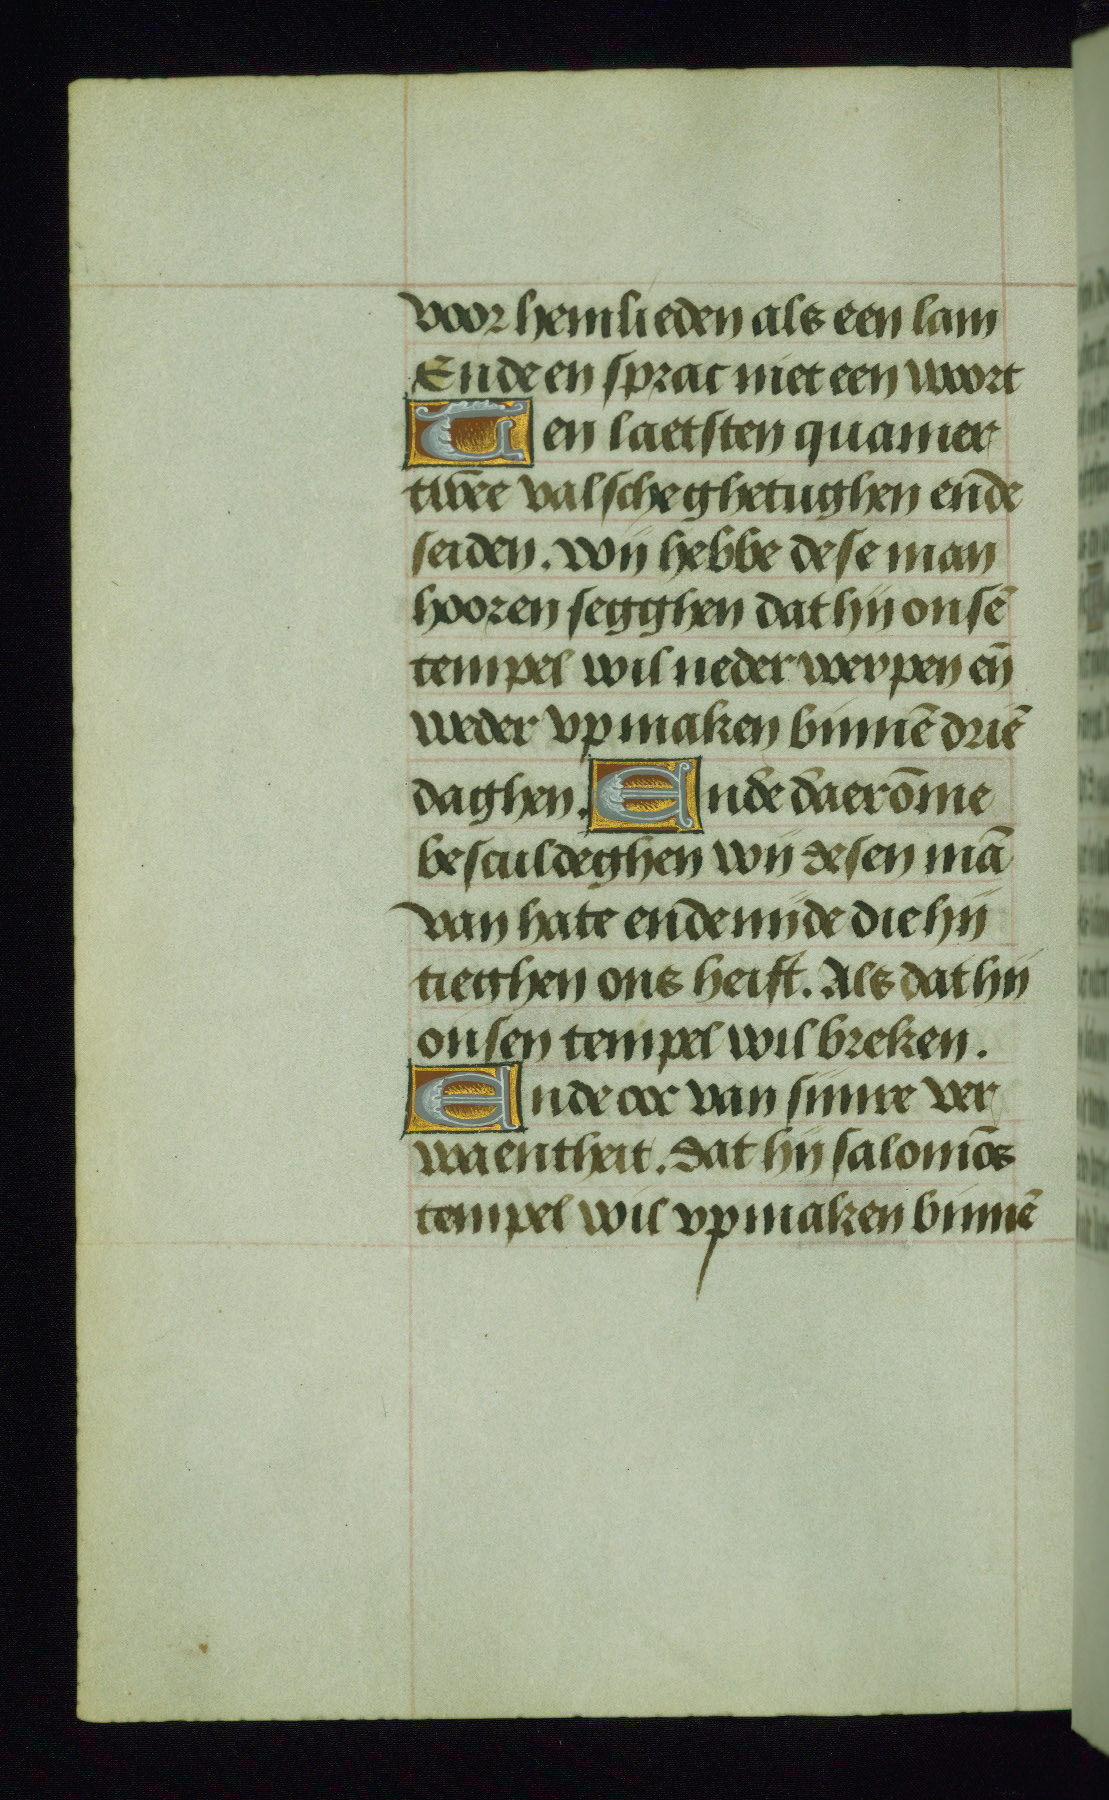 voor hemlieden als een lam
Ende en sprac niet een woort
Ten laetsten quamer
twee valsche ghetughen ende
seiden. Wij hebbe dese man
hooren segghen dat hij onsē
tempel wil neder werpen en̄
weder vp maken binnē driē
daghen. Ende daerōme
besculdeghen wij desen mā
van hate ende nijde die hij
tieghen ons heift. Als dat hij
onsen tempel wil breken.
Ende ooc van sijnre ver
waentheit. dat hij salomōs
tempel wil vp maken binnē